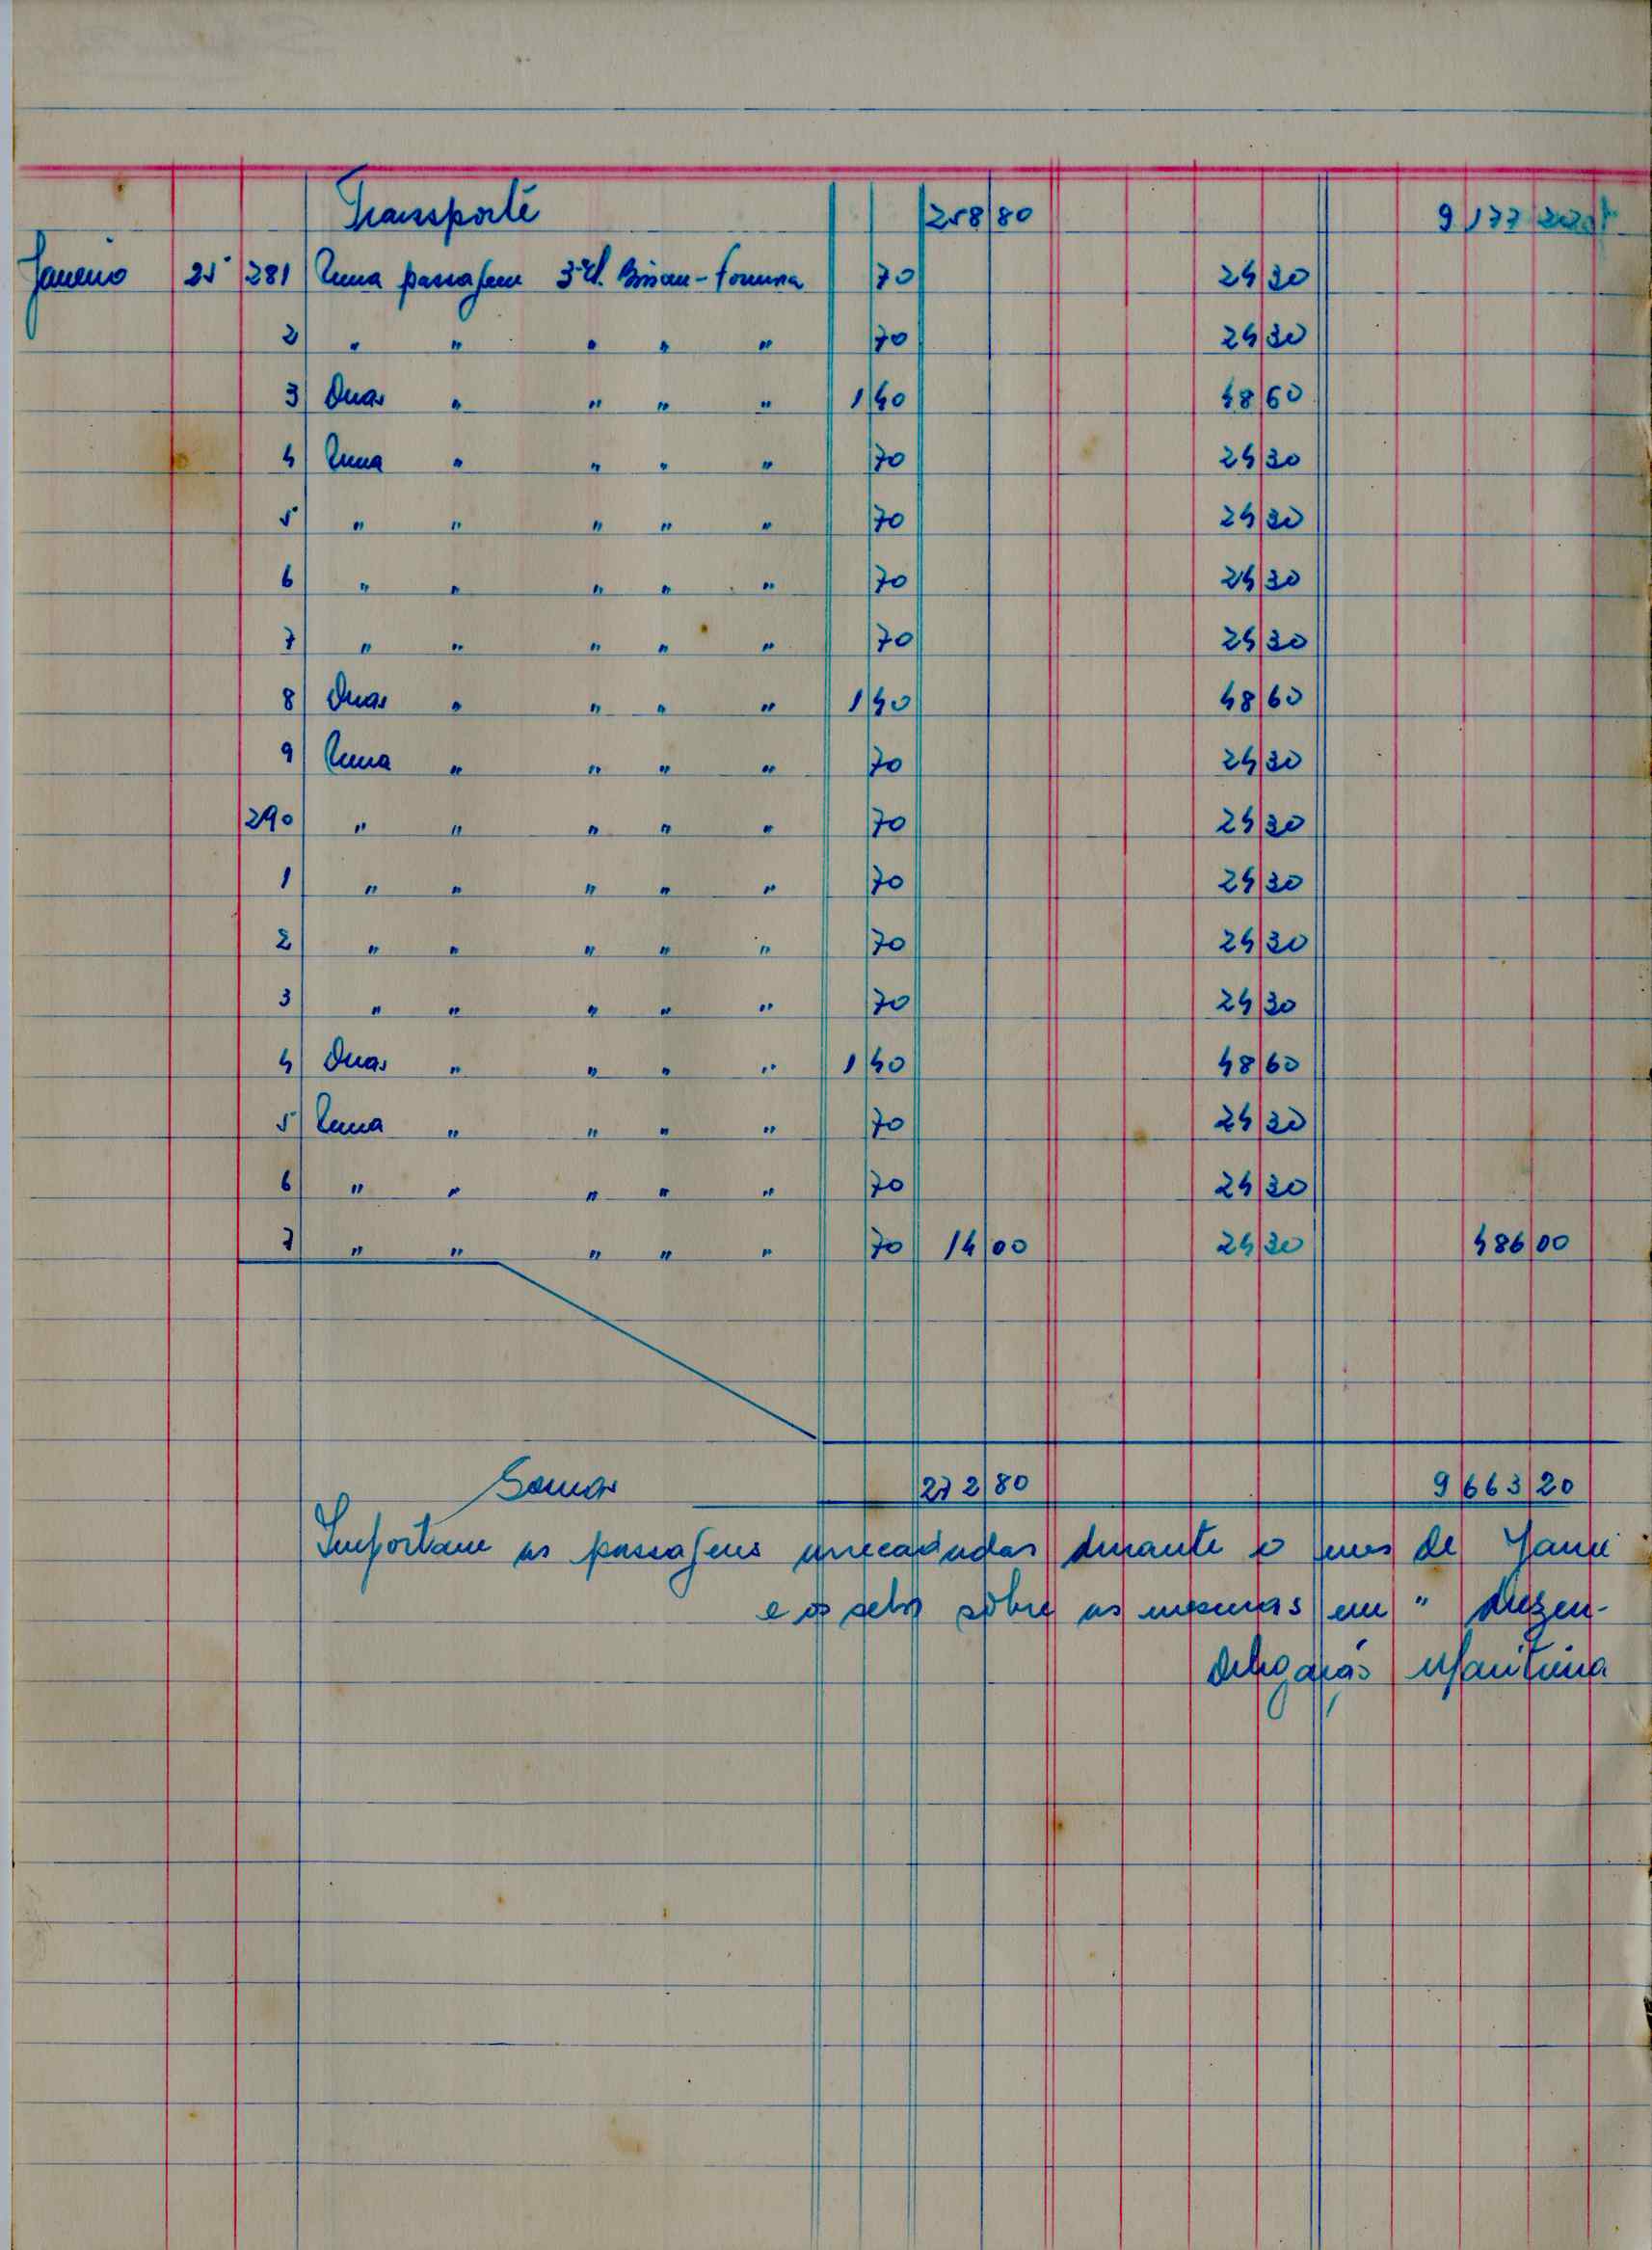 Transporte 258 80 9 177 20
Janeiro 25 281 Uma passagem 3ª cl. Bissau-Formosa 70 24 30
2 " " " " " 70 24 30
3 Duas " " " " 1 40 48 60
4 Uma " " " " 70 24 30
5 " " " " " 70 24 30
6 " " " " " 70 24 30
7 " " " " " 70 24 30
8 Duas " " " " 1 40 48 60
9 Uma " " " " 70 24 30
290 " " " " " 70 24 30
1 " " " " " 70 24 30
2 " " " " " 70 24 30
3 " " " " " 70 24 30
4 Duas " " " " 1 40 48 60
5 Uma " " " " 70 24 30
6 " " " " " 70 24 30
7 " " " " " 70 14 00 24 30 486 00
Somas 272 80 9 663 20
Importam as passagens arrecadadas durante o mes de Janei
e os selos sôbre as mesmas em " Duzen-
Delegação Marítima